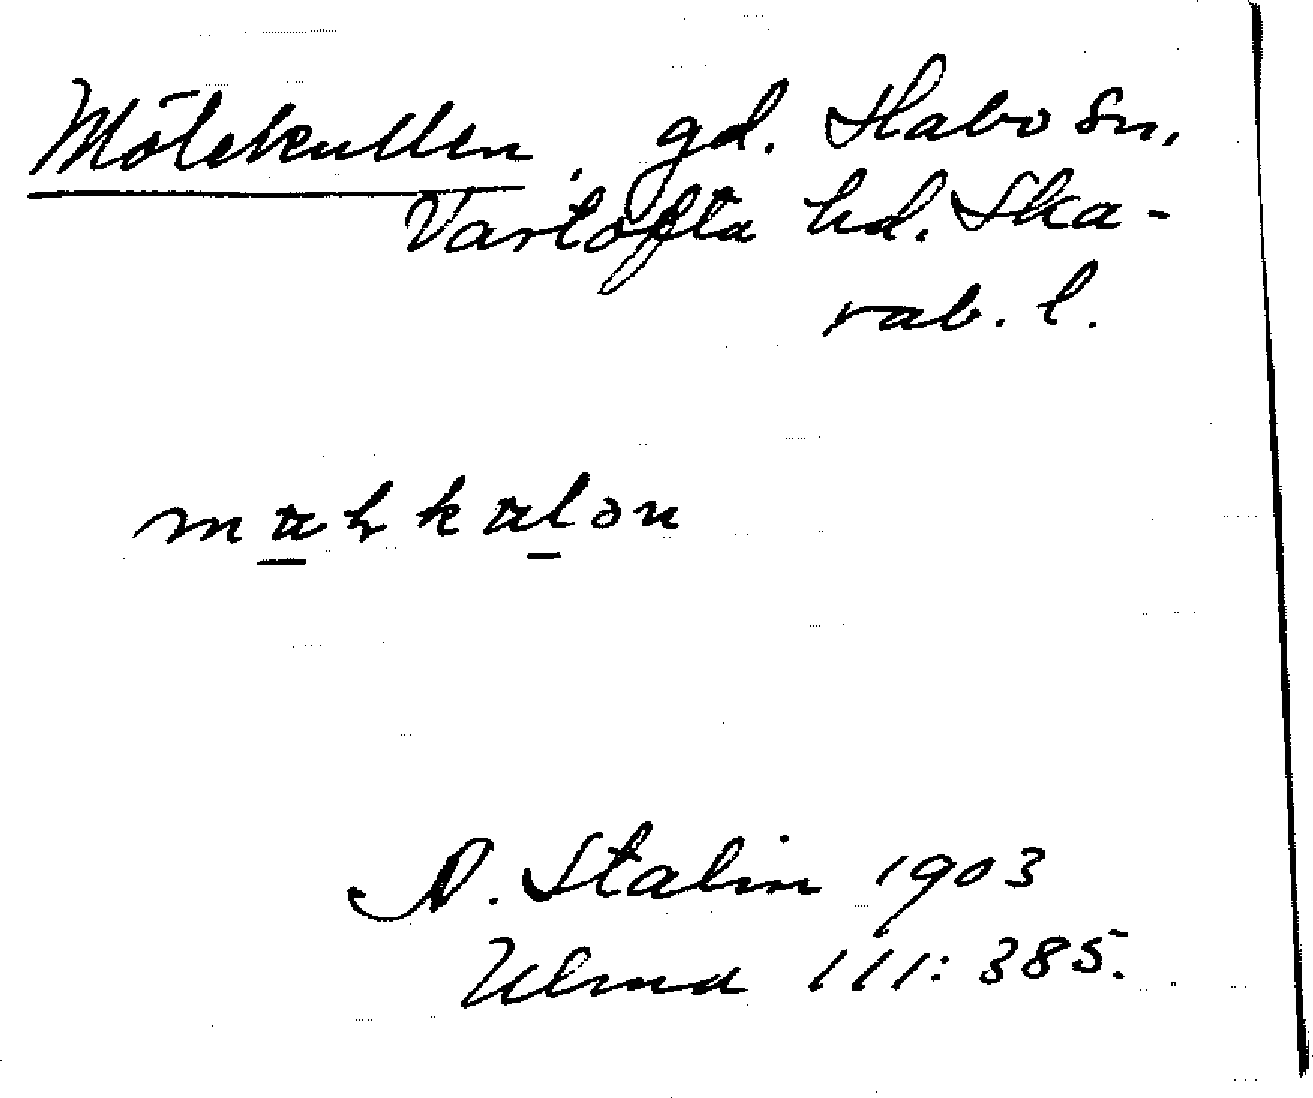 Mölekullen, gd. Habo sn,
Vartofta hd. Ska-
rab. l.
N. Stalin 1903
Ulma 111: 385.